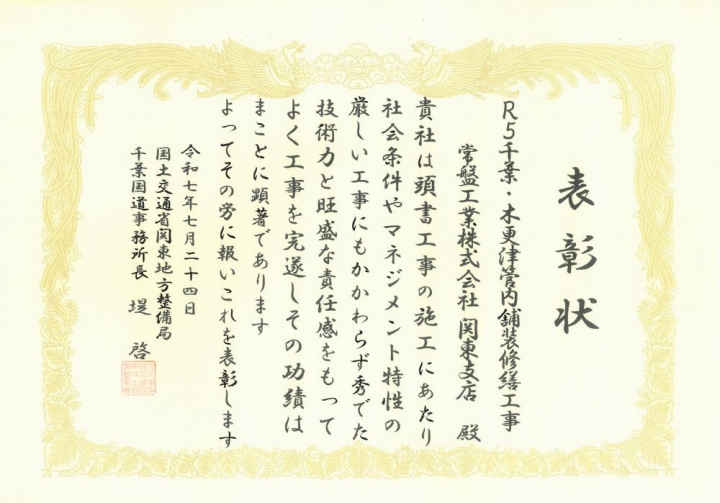 表彰状
R5千葉・木更津管内舗装修繕工事
常盤工業株式会社 関東支店 殿
貴社は頭書工事の施工にあたり
社会条件やマネジメント特性の
厳しい工事にもかかわらず秀でた
技術力と旺盛な責任感をもって
よく工事を完遂しその功績は
まことに顕著であります
よってその労に報いこれを表彰します
令和七年七月二十四日
国土交通省関東地方整備局
千葉国道事務所長 堤 啓